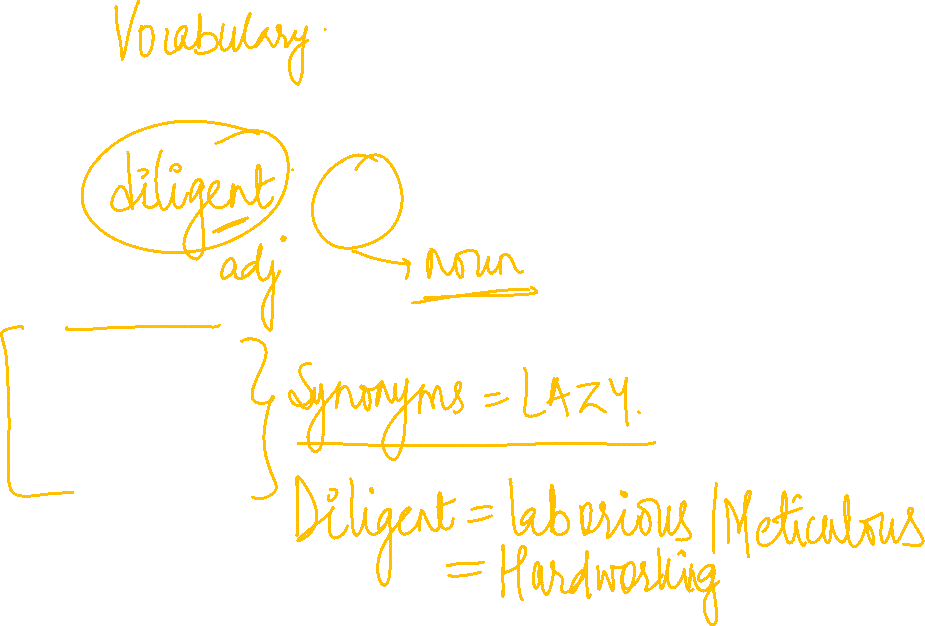 Vocabulary.
diligent
adj
noun
Synonyms = LAZY.
Diligent = laborious / Meticulous
= Hardworking